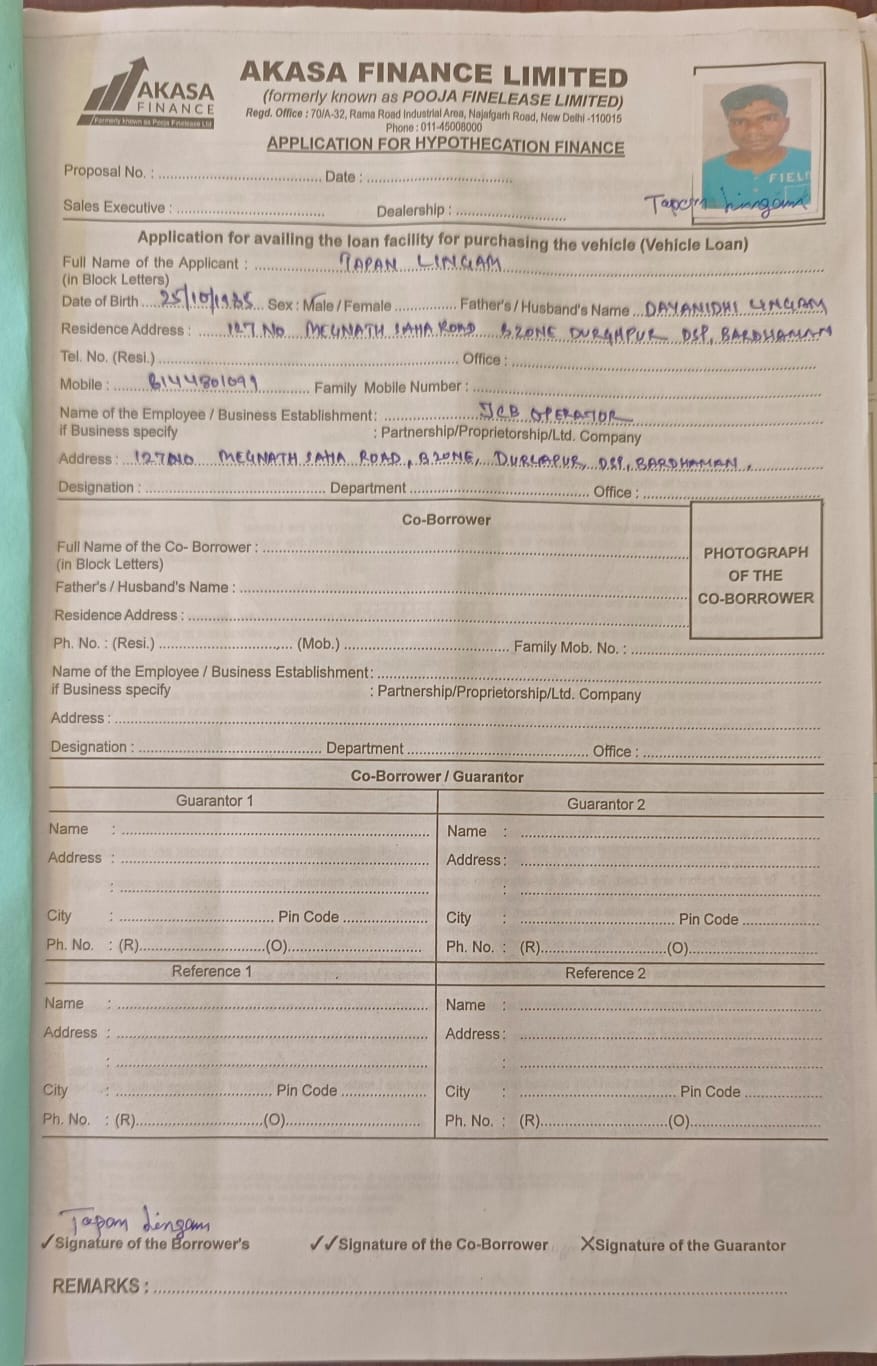 AKASA
FINANCE
Formerly known as Pooja Finelease Ltd
AKASA FINANCE LIMITED
(formerly known as POOJA FINELEASE LIMITED)
Regd. Office : 70/A-32, Rama Road Industrial Area, Najafgarh Road, New Delhi -110015
Phone : 011-45008000
APPLICATION FOR HYPOTHECATION FINANCE
FIEL
Proposal No. : Date :
Tapan Lingam
Sales Executive : Dealership :
Application for availing the loan facility for purchasing the vehicle (Vehicle Loan)
Full Name of the Applicant : TAPAN LINGAM
(in Block Letters)
Date of Birth 25/10/1985 Sex : Male / Female Father's / Husband's Name DAYANIDHI LINGAM
Residence Address : 127 NO MEGNATH SAHA ROAD B ZONE DURGAPUR DSP, BARDHAMAN
Tel. No. (Resi.) Office :
Mobile : 8144801099 Family Mobile Number :
Name of the Employee / Business Establishment: JCB OPERATOR
if Business specify : Partnership/Proprietorship/Ltd. Company
Address : 127 NO MEGNATH SAHA ROAD, B ZONE, DURGAPUR, DSP, BARDHAMAN,
Designation : Department Office :
Co-Borrower
PHOTOGRAPH
OF THE
CO-BORROWER
Full Name of the Co- Borrower :
(in Block Letters)
Father's / Husband's Name :
Residence Address :
Ph. No. : (Resi.) (Mob.) Family Mob. No. :
Name of the Employee / Business Establishment:
if Business specify : Partnership/Proprietorship/Ltd. Company
Address :
Designation : Department Office :
Co-Borrower / Guarantor
Guarantor 1 Guarantor 2
Name : Name :
Address : Address :
: :
City : Pin Code City : Pin Code
Ph. No. : (R) (O) Ph. No. : (R) (O)
Reference 1 Reference 2
Name : Name :
Address : Address :
: :
City : Pin Code City : Pin Code
Ph. No. : (R) (O) Ph. No. : (R) (O)
Tapan Lingam
✓Signature of the Borrower's ✓✓Signature of the Co-Borrower XSignature of the Guarantor
REMARKS :